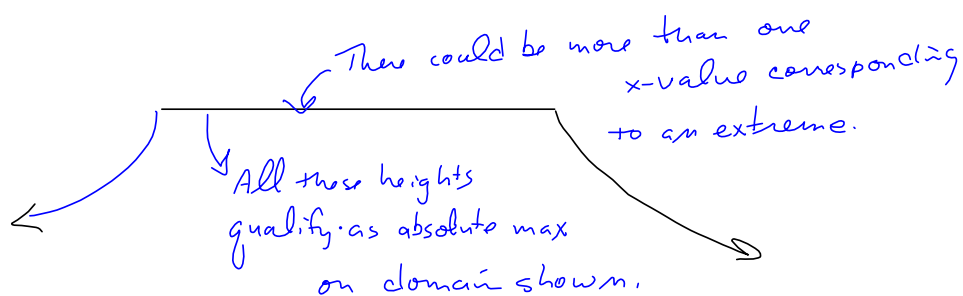 There could be more than one
x-value corresponding
to an extreme.
All these heights
qualify as absolute max
on domain shown.